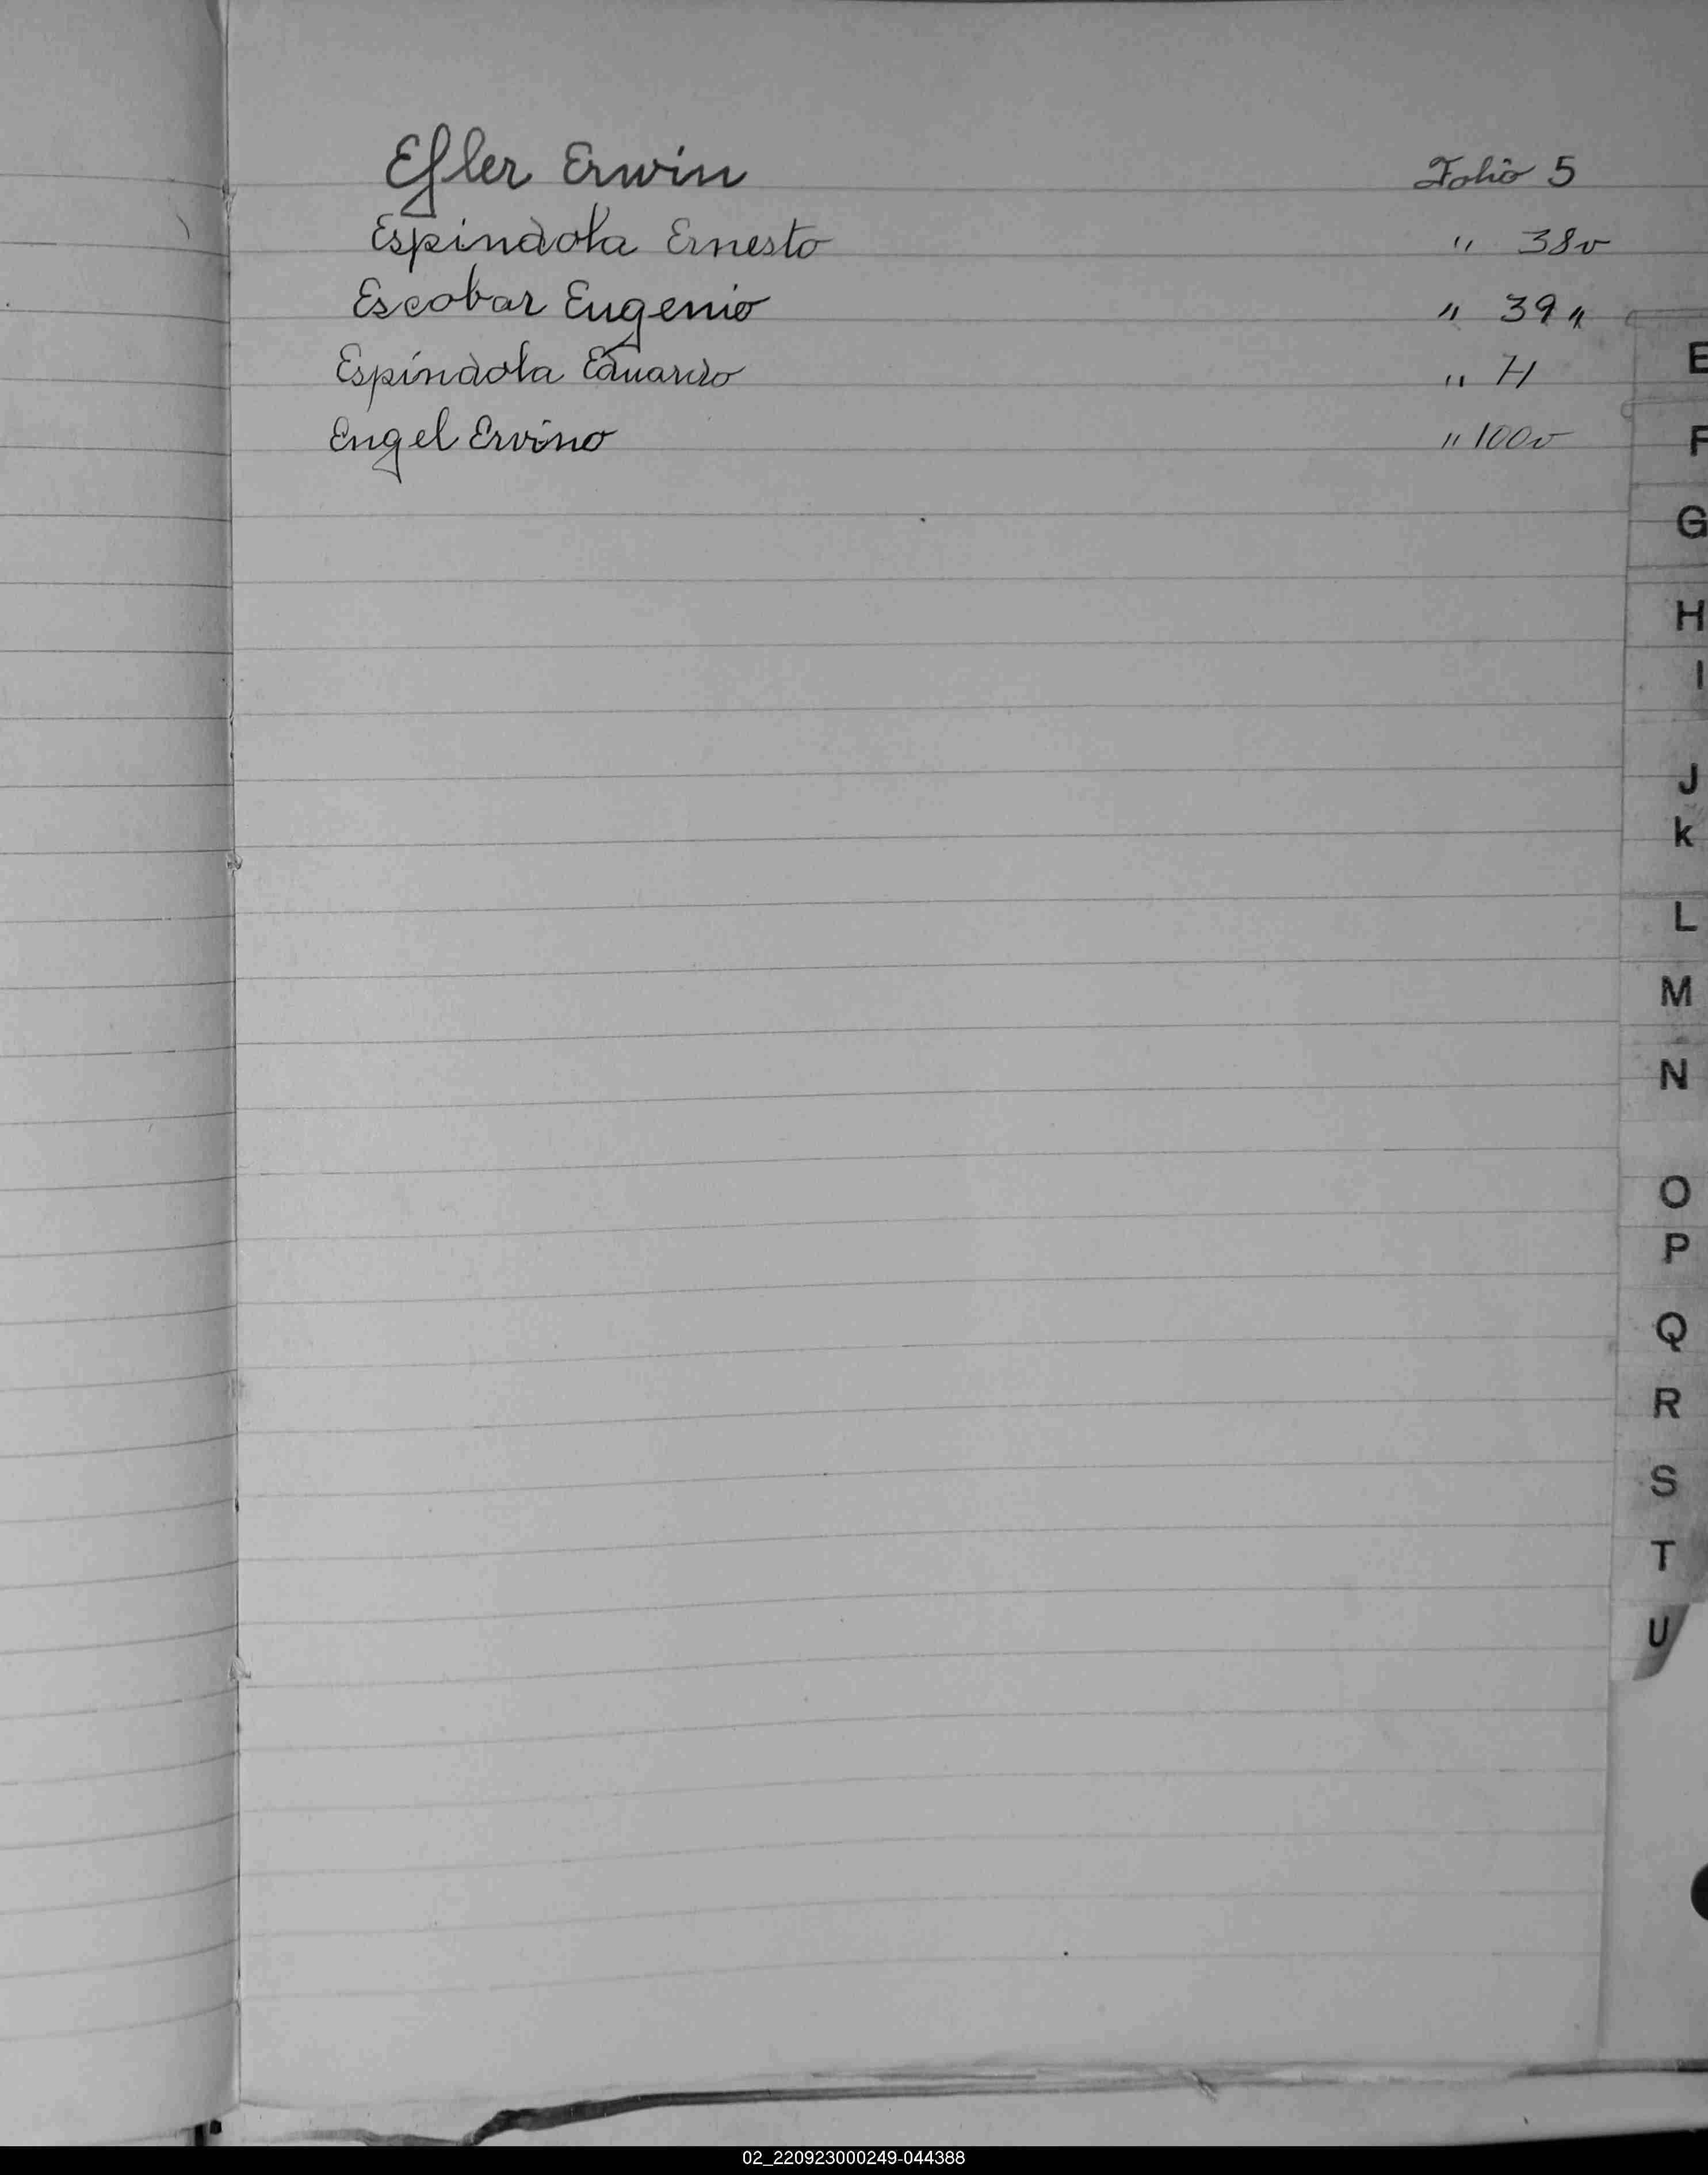 Efler Erwin Folio 5
Espindola Ernesto " 38v
Escobar Eugenio " 39 "
Espíndola Eduardo " 71
Engel Ervino " 100v
E
F
G
H
I
J
k
L
M
N
O
P
Q
R
S
T
U
02_220923000249-044388